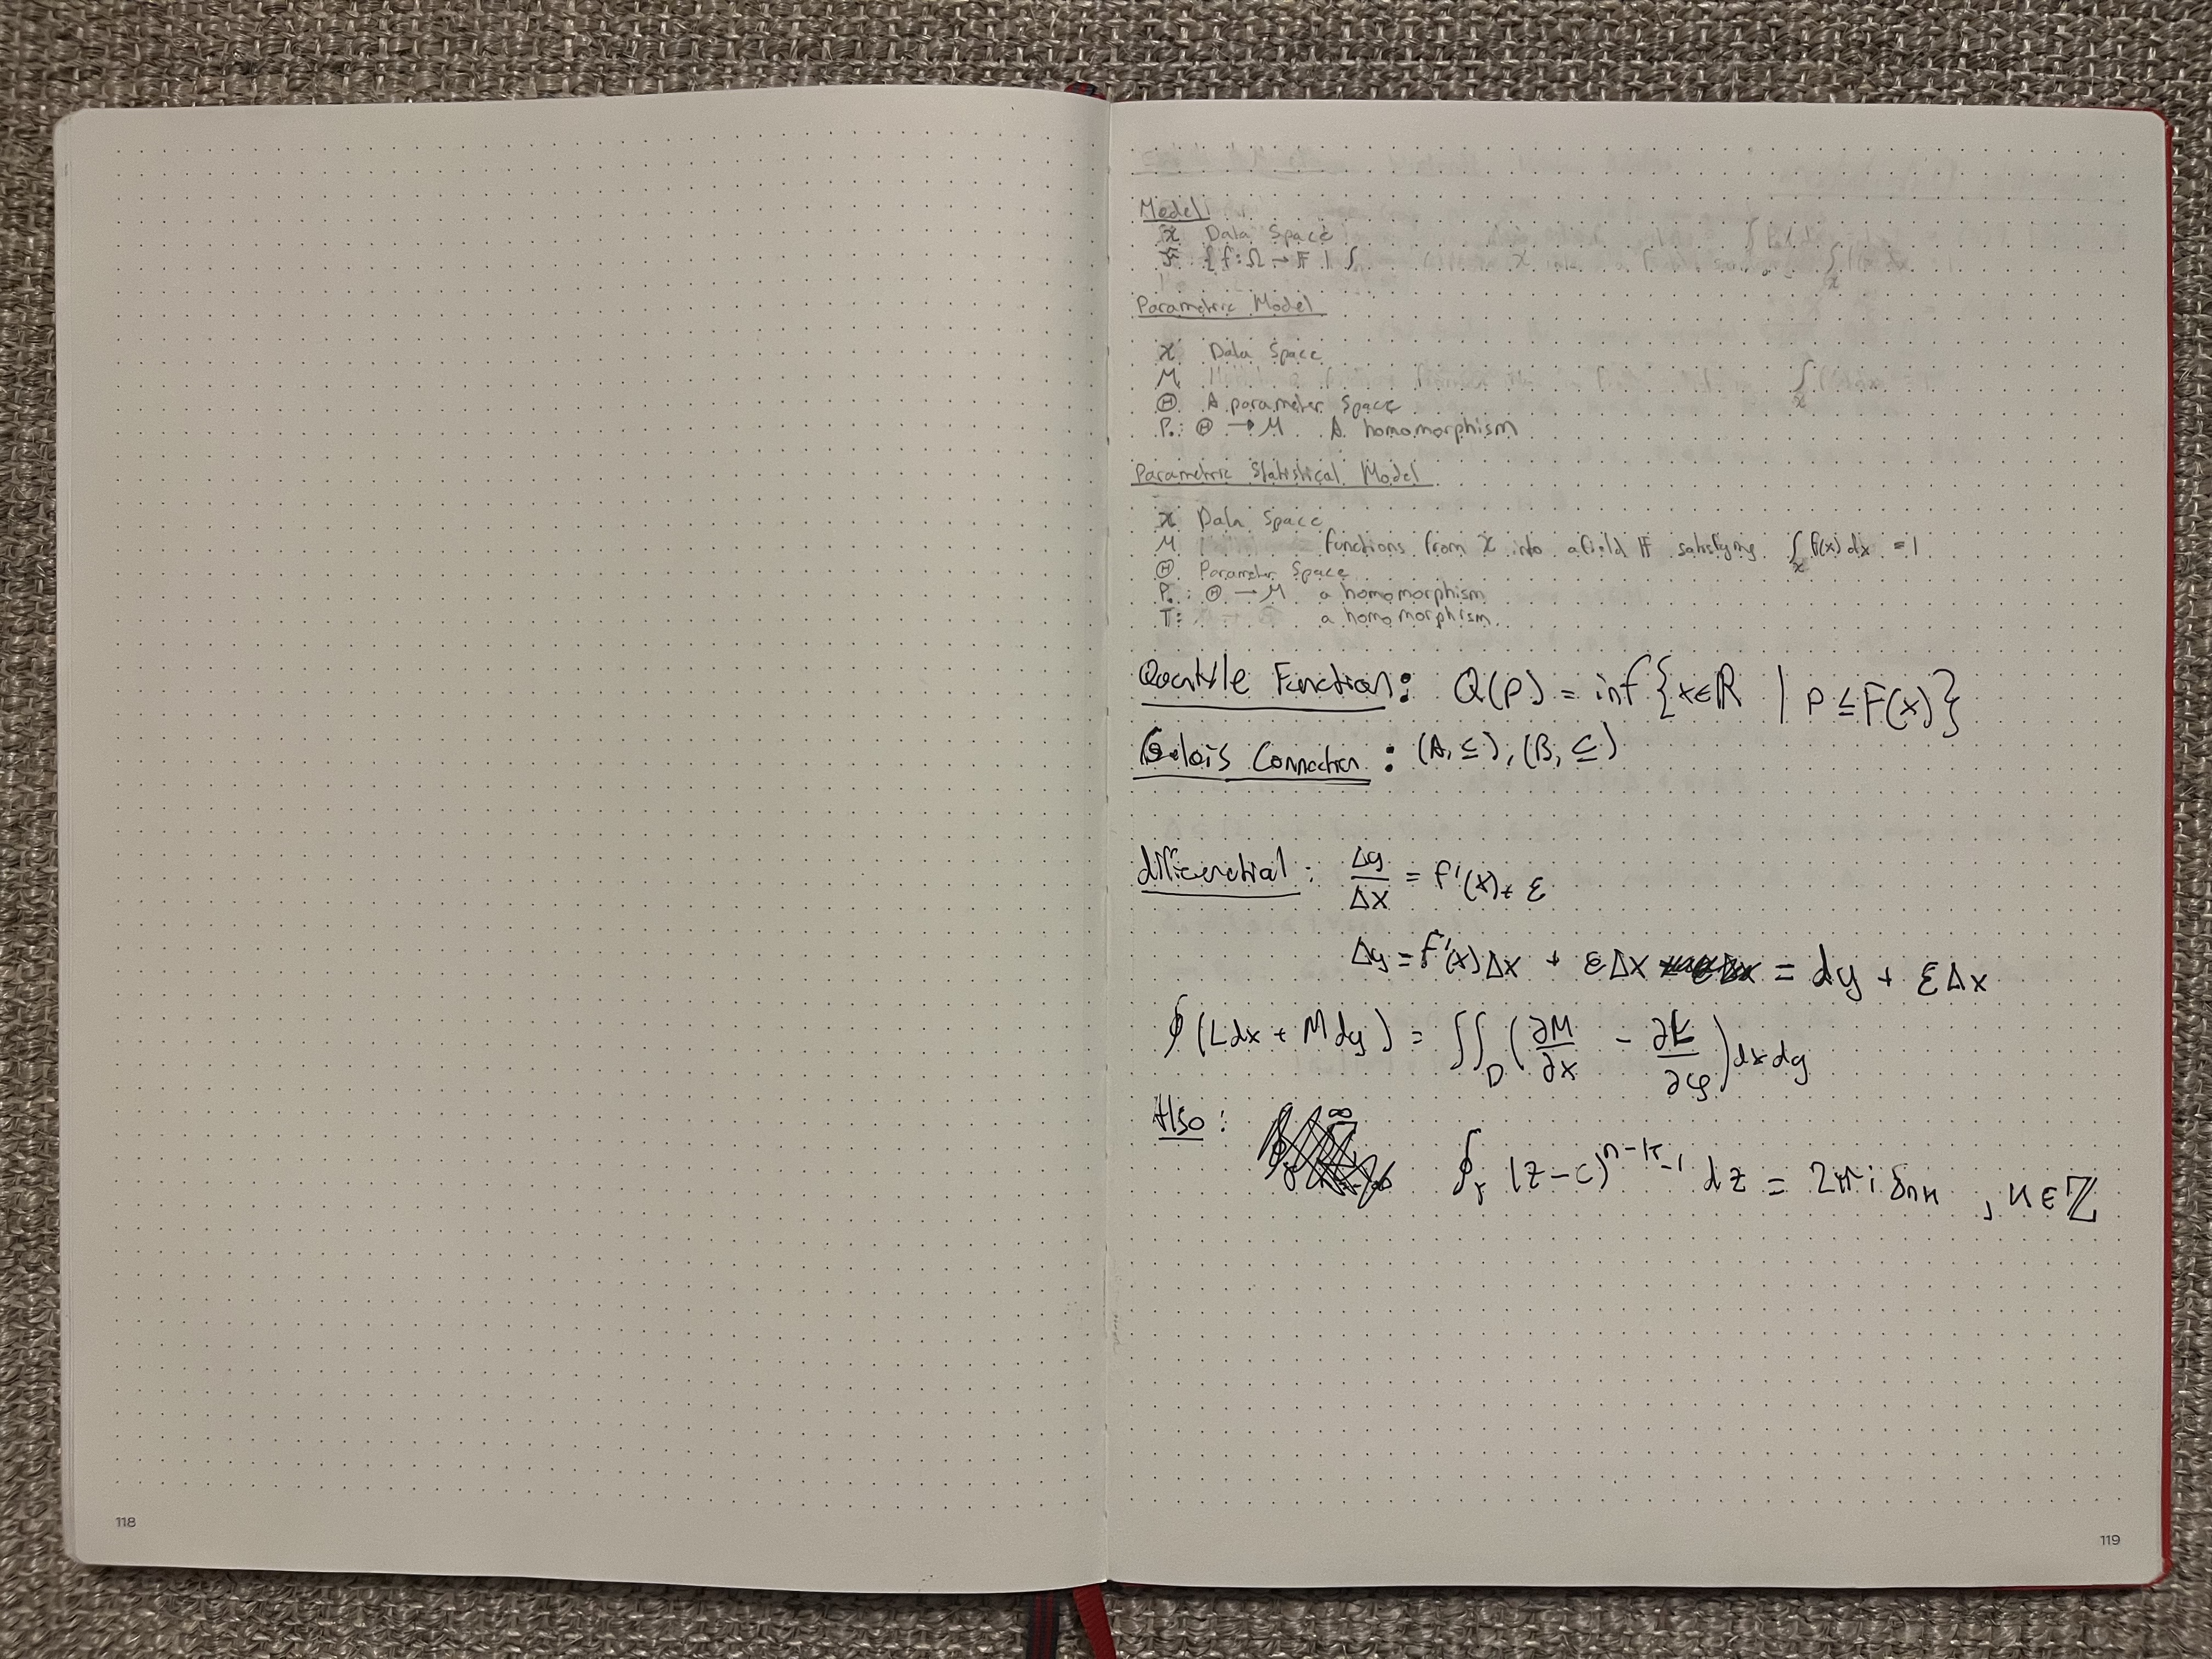 118
Model
𝒳 Data space
ℱ {f: Ω → 𝔽 | ∫
Parametric Model
𝒳 Data space
M
Θ A parameter space
P: Θ → M A homomorphism
Parametric Statistical Model
𝒳 Data space
M functions from 𝒳 into a field 𝔽 satisfying ∫_𝒳 f(x) dx = 1
Θ Parameter space
P: Θ → M a homomorphism
T: a homomorphism
Quantile Function: Q(p) = inf {x ∈ ℝ | p ≤ F(x)}
Galois Connection: (A, ≤), (B, ≤)
differential: Δy/Δx = f'(x) + ε
Δy = f'(x)Δx + εΔx = dy + εΔx
∮(Ldx + Mdy) = ∬_D (∂M/∂x − ∂L/∂y) dx dy
Also: ∮_γ (z − c)^{n−k−1} dz = 2πi δ_{nk}, n ∈ ℤ
119